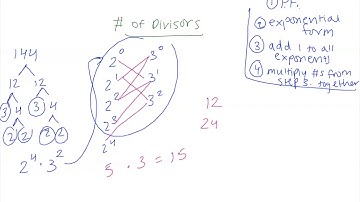 # of Divisors
① PF.
② exponential
form
③ add 1 to all
exponents
④ multiply #s from
step 3. together
144
12 12
3 4 3 4
2 2 2 2
2⁴ · 3²
2⁰ 3⁰
2¹ 3¹
2² 3²
2³
2⁴
5 · 3 = 15
12
24